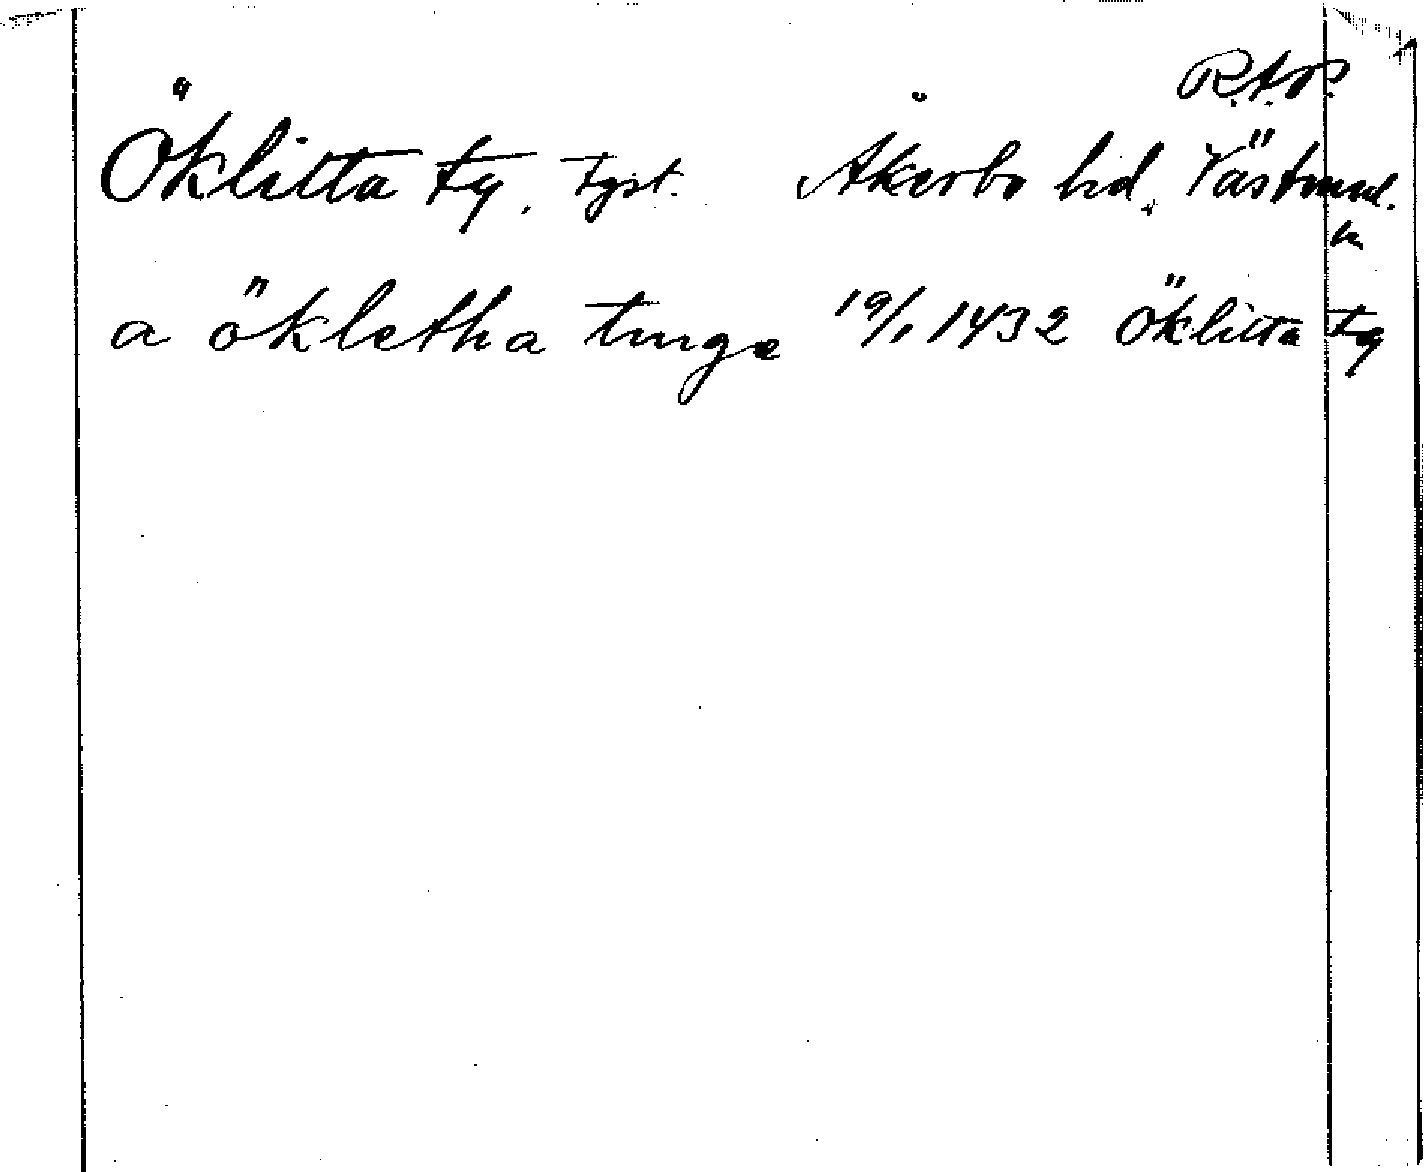 R.A.P.
Öklitta tg, Tgst. Åkerbo hd, Västmnl.
a ökletha tinge 19/1 1432 Öklitta tg